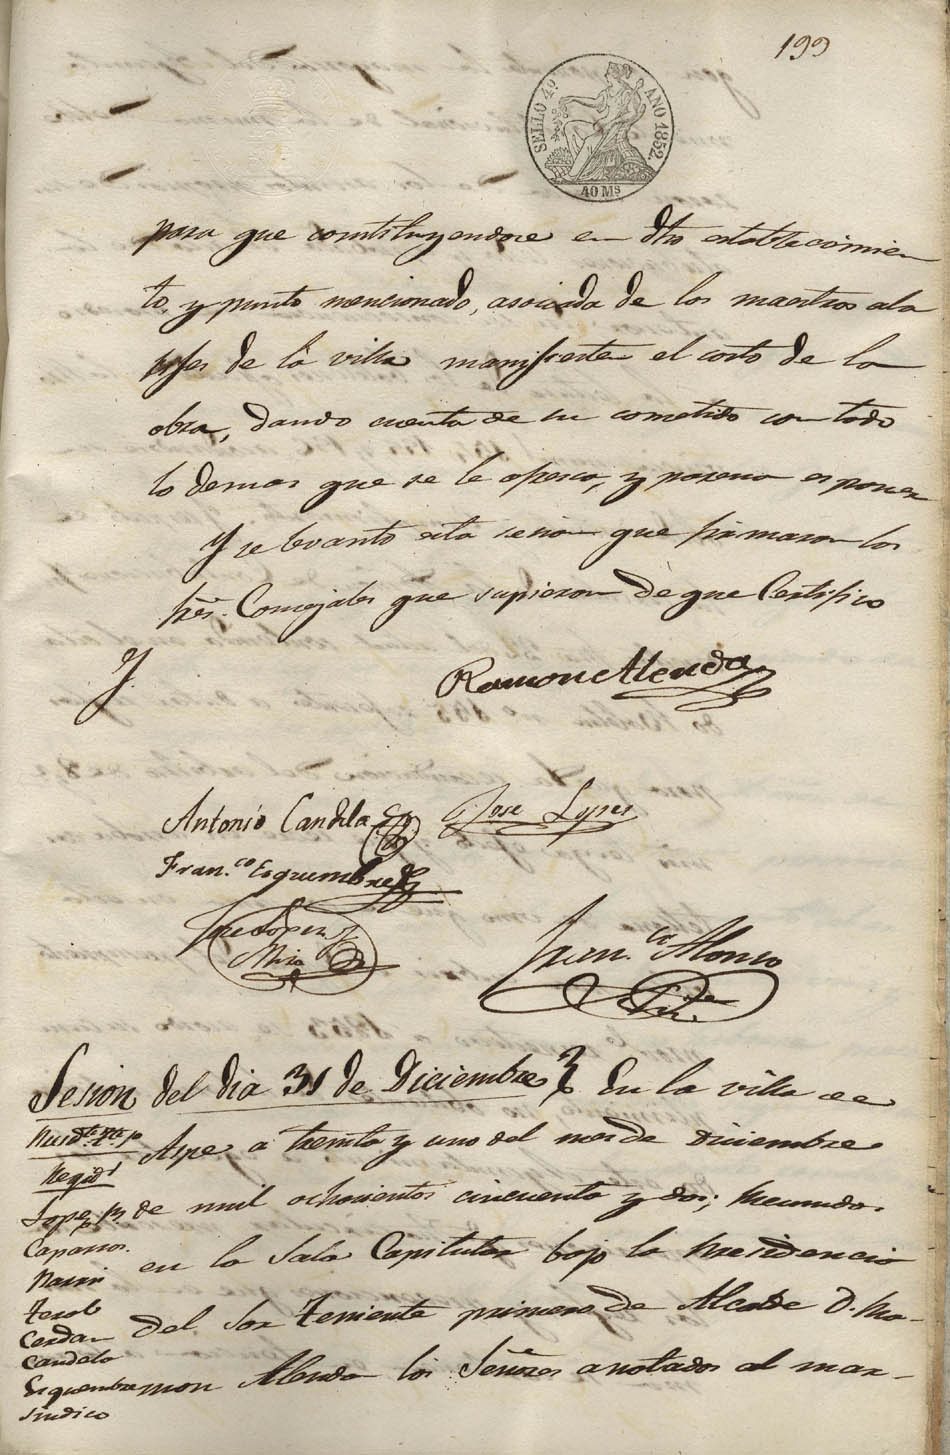 199
SELLO 4º AÑO 1852.
40 Ms
para que constituyendose en dho establecimien
to, y punto mencionado, asociada de los maestros ala
rifes de la villa manifieste el costo de la
obra, dando cuenta de su cometido con todo
lo demas que se le ofresca, y paresca esponer
Y se levantó esta sesion que firmaron los
Sres. Concejales que supieron de que Certifico
Ramon Alenda
Antonio Candela
Jose Lopes
Fran.co Esquembre
Jose Lopez
Mira
Fran.co Alonso
Srio.
Sesion del dia 31 de Diciembre En la villa de
Aspe á treinta y uno del mes de Diciembre
de mil ochocientos cincuenta y dos; reunidos
en la Sala Capitular bajo la Presidencia
del Sor Teniente primero de Alcalde D. Ra-
mon Alenda los Señores anotados al mar-
Regid.s
Lopez
Caparros.
Pavia
Terol
Cerdan
Candela
Esquembre
Sindico